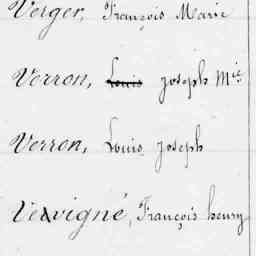 Verger, François Marie
Verron, Louis joseph Mie
Verron, Louis joseph
Vervigné, François henry